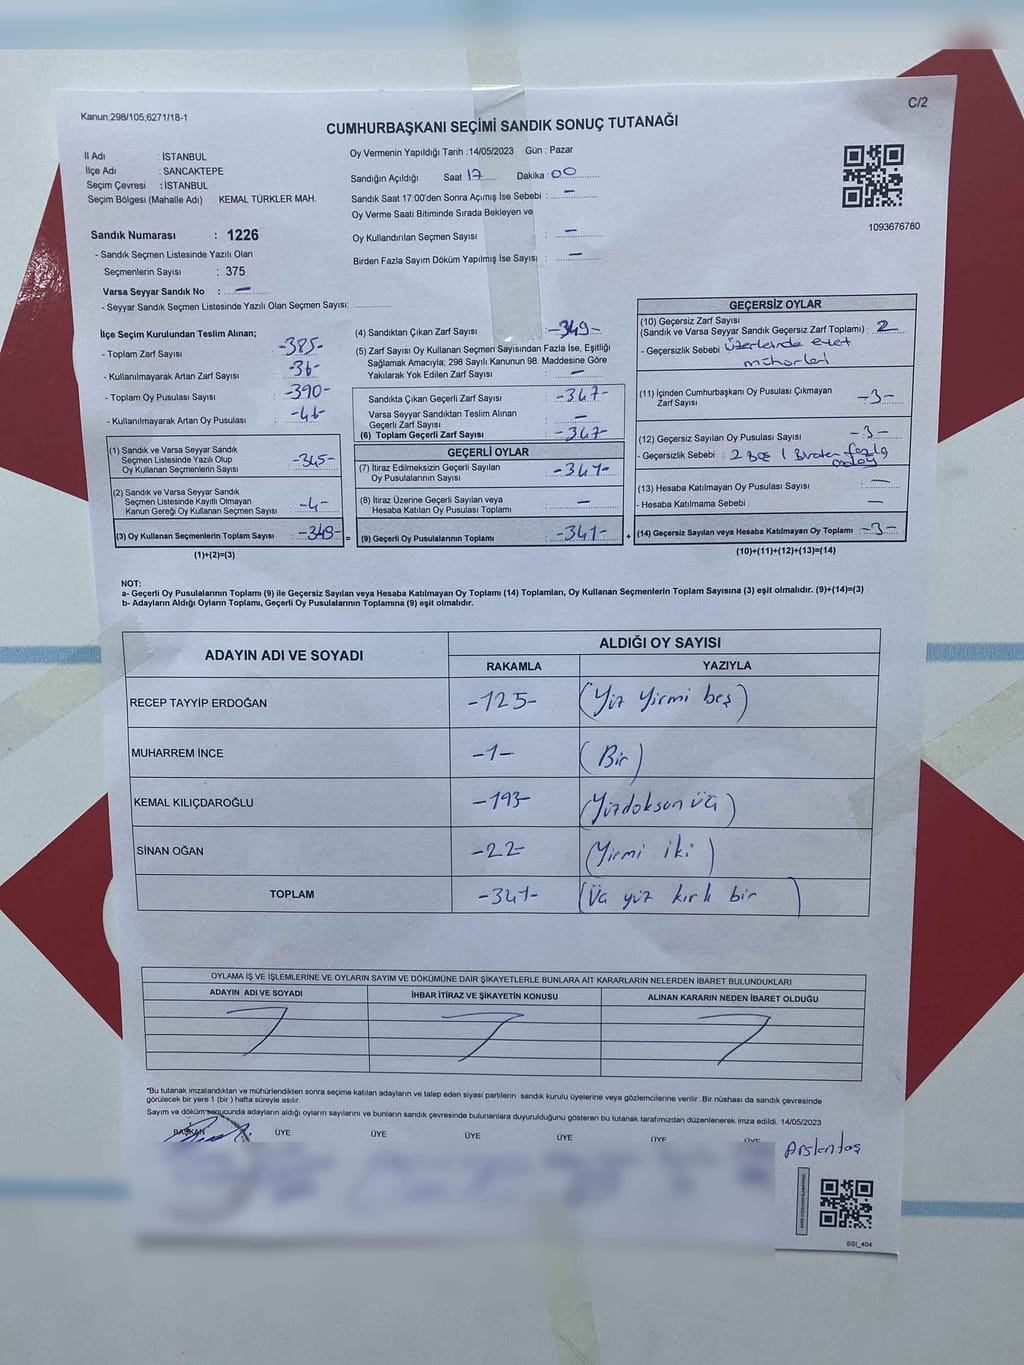 Kanun;298/105;6271/18-1
C/2
CUMHURBAŞKANI SEÇİMİ SANDIK SONUÇ TUTANAĞI
İl Adı : İSTANBUL
İlçe Adı : SANCAKTEPE
Seçim Çevresi : İSTANBUL
Seçim Bölgesi (Mahalle Adı) : KEMAL TÜRKLER MAH.
Oy Vermenin Yapıldığı Tarih :14/05/2023 Gün : Pazar
Sandığın Açıldığı Saat 17 Dakika :00
Sandık Saat 17:00'den Sonra Açımış İse Sebebi : -
Oy Verme Saati Bitiminde Sırada Bekleyen ve
Oy Kullandırılan Seçmen Sayısı : -
Birden Fazla Sayım Döküm Yapılmış İse Sayısı : -
1093676780
Sandık Numarası : 1226
- Sandık Seçmen Listesinde Yazılı Olan
Seçmenlerin Sayısı : 375
Varsa Seyyar Sandık No : -
- Seyyar Sandık Seçmen Listesinde Yazılı Olan Seçmen Sayısı:
İlçe Seçim Kurulundan Teslim Alınan;
- Toplam Zarf Sayısı -385-
- Kullanılmayarak Artan Zarf Sayısı -36-
- Toplam Oy Pusulası Sayısı -390-
- Kullanılmayarak Artan Oy Pusulası
(1) Sandık ve Varsa Seyyar Sandık
Seçmen Listesinde Yazılı Olup
Oy Kullanan Seçmenlerin Sayısı -345-
(2) Sandık ve Varsa Seyyar Sandık
Seçmen Listesinde Kayıtlı Olmayan
Kanun Gereği Oy Kullanan Seçmen Sayısı -4-
(3) Oy Kullanan Seçmenlerin Toplam Sayısı -349- =
(1)+(2)=(3)
(4) Sandıktan Çıkan Zarf Sayısı -349-
(5) Zarf Sayısı Oy Kullanan Seçmen Sayısından Fazla İse, Eşitliği
Sağlamak Amacıyla; 298 Sayılı Kanunun 98. Maddesine Göre
Yakılarak Yok Edilen Zarf Sayısı -
Sandıkta Çıkan Geçerli Zarf Sayısı -347-
Varsa Seyyar Sandıktan Teslim Alınan
Geçerli Zarf Sayısı -
(6) Toplam Geçerli Zarf Sayısı -347-
GEÇERLİ OYLAR
(7) İtiraz Edilmeksizin Geçerli Sayılan
Oy Pusulalarının Sayısı -341-
(8) İtiraz Üzerine Geçerli Sayılan veya
Hesaba Katılan Oy Pusulası Toplamı -
(9) Geçerli Oy Pusulalarının Toplamı -341- +
GEÇERSİZ OYLAR
(10) Geçersiz Zarf Sayısı
(Sandık ve Varsa Seyyar Sandık Geçersiz Zarf Toplamı) : 2
- Geçersizlik Sebebi Üzerlerinde evet
(11) İçinden Cumhurbaşkanı Oy Pusulası Çıkmayan
Zarf Sayısı -3-
(12) Geçersiz Sayılan Oy Pusulası Sayısı -3-
- Geçersizlik Sebebi : 2 Boş 1 Birden fazla
(13) Hesaba Katılmayan Oy Pusulası Sayısı -
- Hesaba Katılmama Sebebi : -
(14) Geçersiz Sayılan veya Hesaba Katılmayan Oy Toplamı -3-
(10)+(11)+(12)+(13)=(14)
NOT:
a- Geçerli Oy Pusulalarının Toplamı (9) ile Geçersiz Sayılan veya Hesaba Katılmayan Oy Toplamı (14) Toplamları, Oy Kullanan Seçmenlerin Toplam Sayısına (3) eşit olmalıdır. (9)+(14)=(3)
b- Adayların Aldığı Oyların Toplamı, Geçerli Oy Pusulalarının Toplamına (9) eşit olmalıdır.
ADAYIN ADI VE SOYADI
ALDIĞI OY SAYISI
RAKAMLA YAZIYLA
RECEP TAYYİP ERDOĞAN -125- (Yüz Yirmi beş)
MUHARREM İNCE -1- (Bir)
KEMAL KILIÇDAROĞLU -193- (Yüzdoksan üç)
SİNAN OĞAN -22- (Yirmi iki)
TOPLAM -341- (Üç yüz kırk bir)
OYLAMA İŞ VE İŞLEMLERİNE VE OYLARIN SAYIM VE DÖKÜMÜNE DAİR ŞİKAYETLERLE BUNLARA AİT KARARLARIN NELERDEN İBARET BULUNDUKLARI
ADAYIN ADI VE SOYADI İHBAR İTİRAZ VE ŞİKAYETİN KONUSU ALINAN KARARIN NEDEN İBARET OLDUĞU
*Bu tutanak imzalandıktan ve mühürlendikten sonra seçime katılan adayların ve talep eden siyasi partilerin sandık kurulu üyelerine veya gözlemcilerine verilir. Bir nüshası da sandık çevresinde
görülecek bir yere 1 (bir) hafta süreyle asılır.
Sayım ve döküm sonucunda adayların aldığı oyların sayılarını ve bunların sandık çevresinde bulunanlara duyurulduğunu gösteren bu tutanak tarafımızdan düzenlenerek imza edildi. 14/05/2023
BAŞKAN ÜYE ÜYE ÜYE ÜYE ÜYE ÜYE
Arslantaş
SSI_404